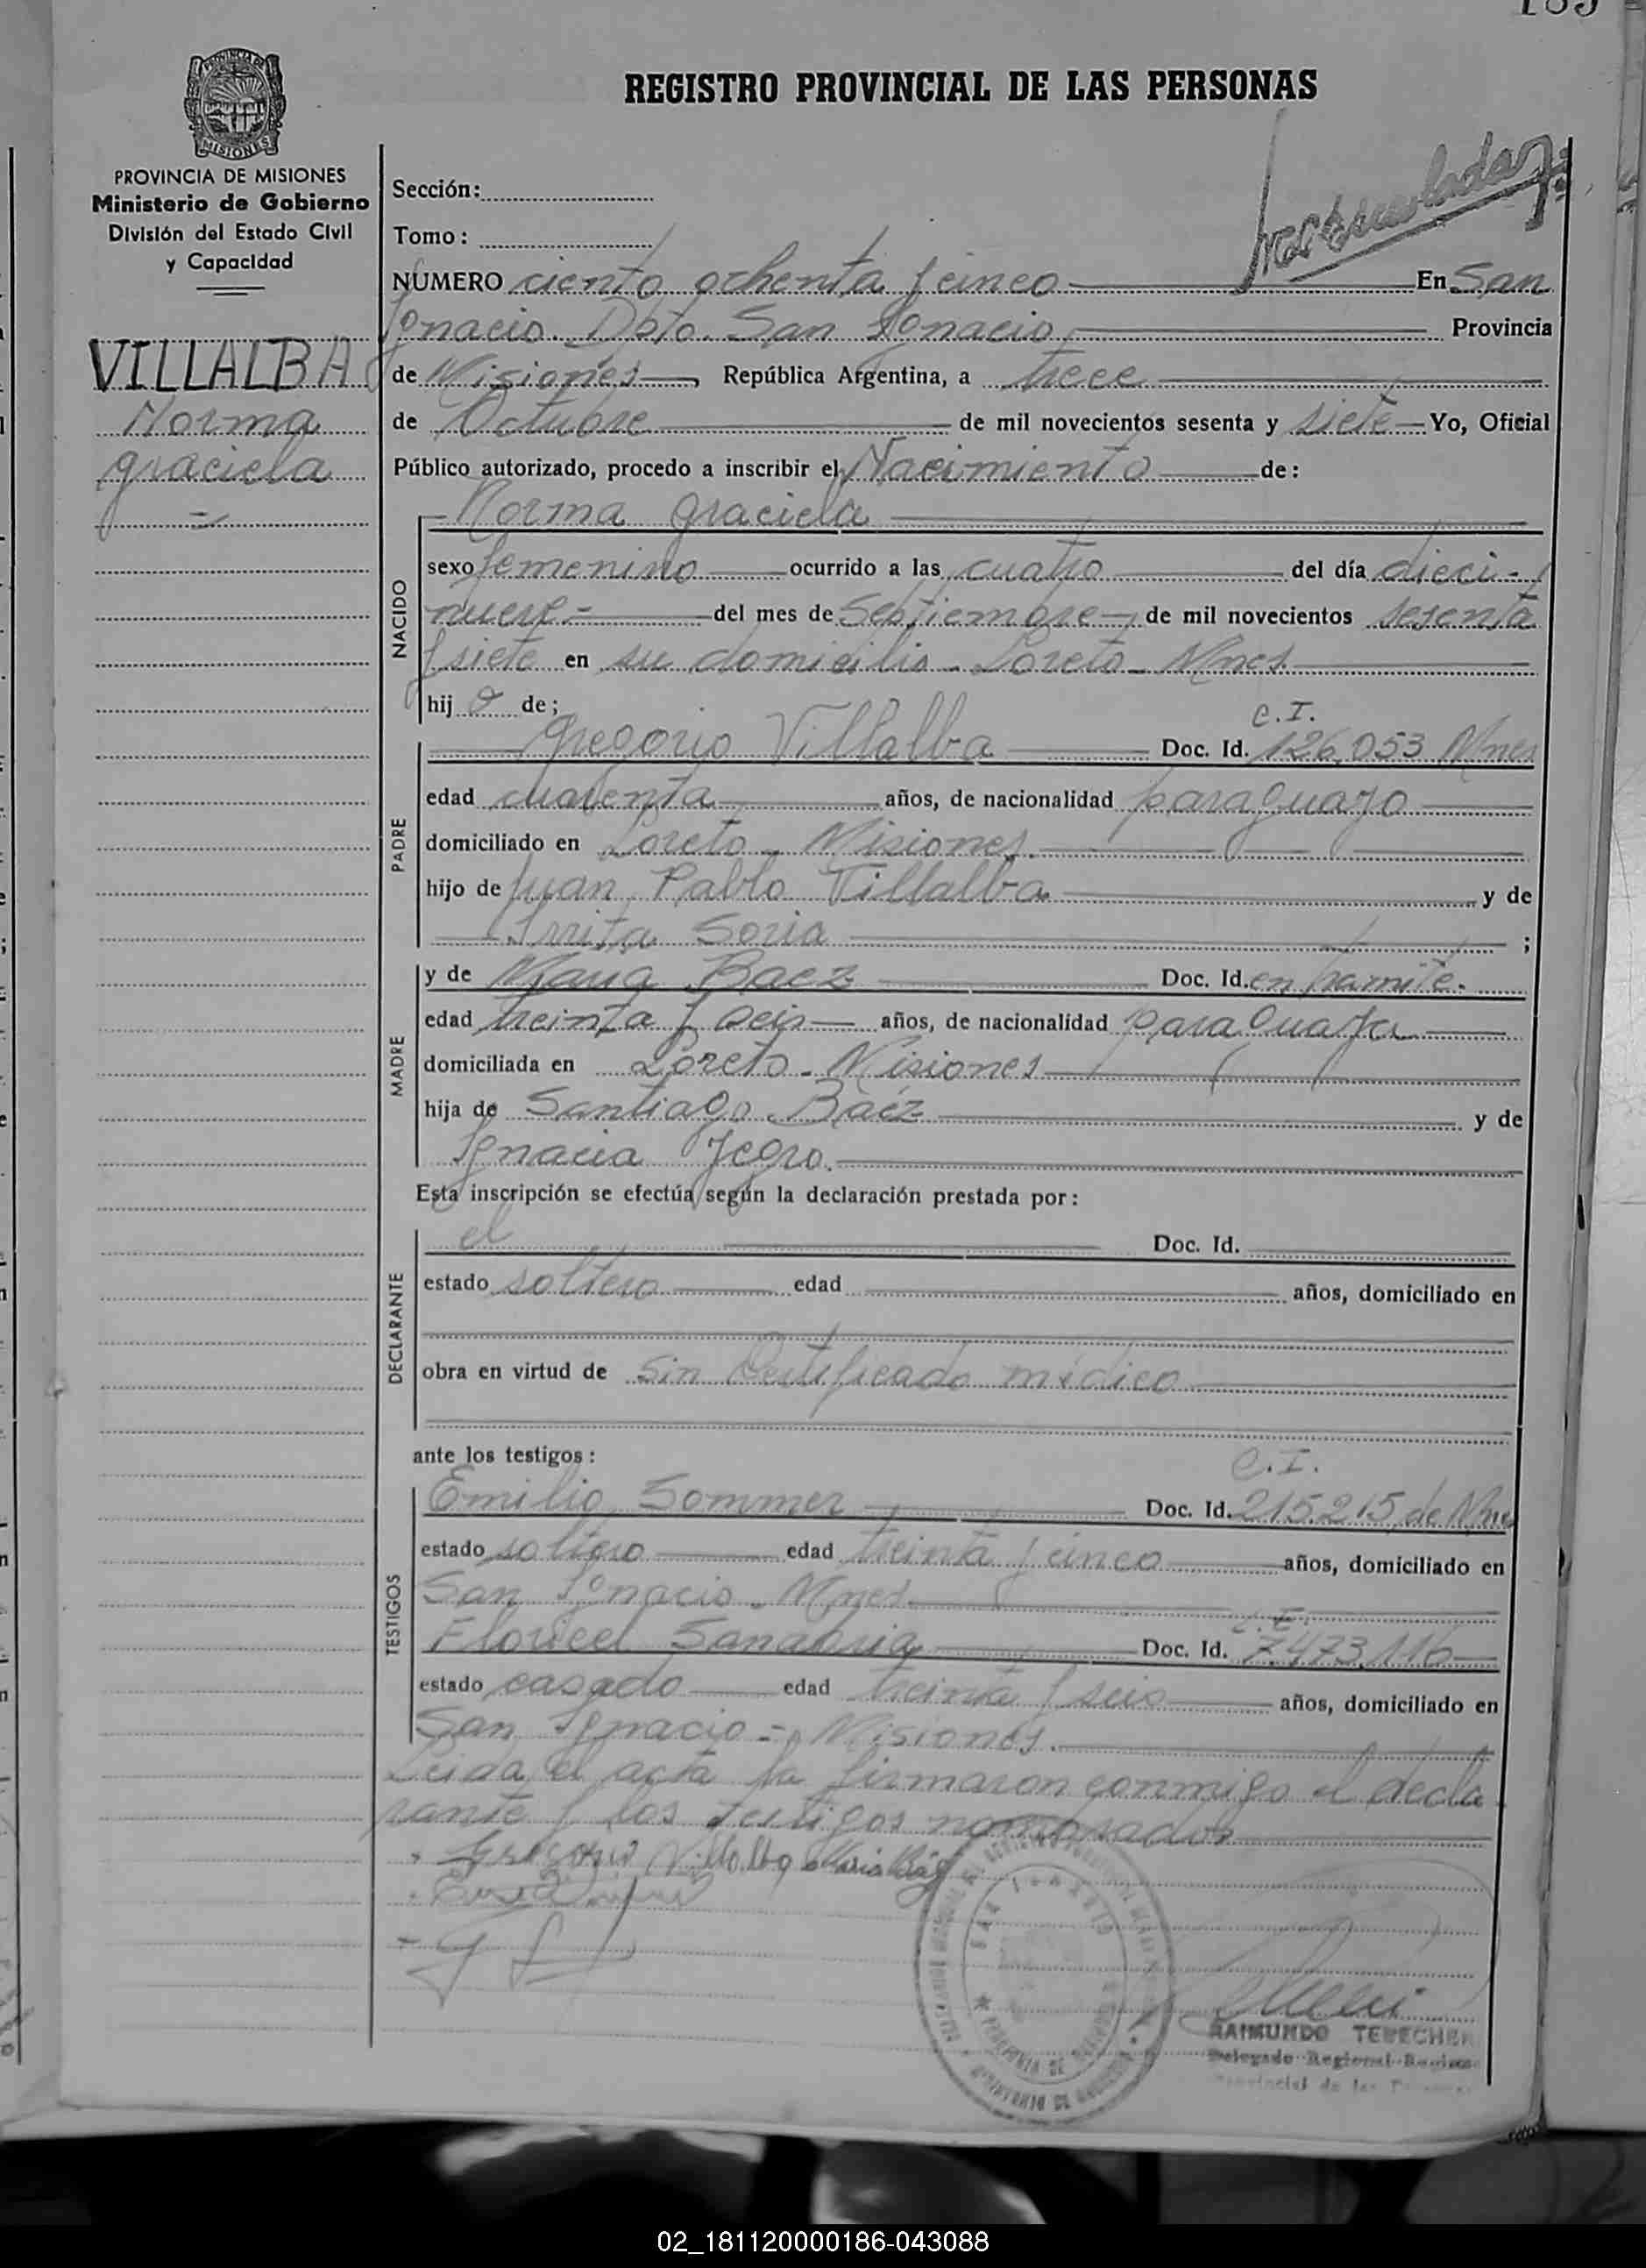 185
REGISTRO PROVINCIAL DE LAS PERSONAS
PROVINCIA DE MISIONES
MISIONES
PROVINCIA DE MISIONES
Ministerio de Gobierno
División del Estado Civil
y Capacidad
VILLALBA
Norma
Graciela
Sección:
Tomo:
NUMERO ciento ochenta y cinco En San
Ignacio. Dpto. San Ignacio Provincia
de Misiones, República Argentina, a trece
de Octubre de mil novecientos sesenta y siete Yo, Oficial
Público autorizado, procedo a inscribir el Nacimiento de:
Norma Graciela
NACIDO
sexo femenino ocurrido a las cuatro del día dieci-
nueve del mes de Septiembre de mil novecientos sesenta
y siete en su domicilio - Loreto - Mnes.
hij a de;
C.I.
PADRE
Gregorio Villalba Doc. Id. 126.053 Mnes
edad cuarenta años, de nacionalidad paraguayo
domiciliado en Loreto - Misiones.
hijo de Juan Pablo Villalba y de
Soria ;
MADRE
y de María Baez Doc. Id. en trámite.
edad treinta y seis años, de nacionalidad paraguaya
domiciliada en Loreto - Misiones
hija de Santiago Baéz y de
Ignacia Yegro.
Esta inscripción se efectúa según la declaración prestada por:
DECLARANTE
el Doc. Id.
estado soltero edad años, domiciliado en
obra en virtud de Sin Certificado médico
ante los testigos:
C.I.
TESTIGOS
Emilio Sommer Doc. Id. 215.215 de Mnes
estado soltero edad treinta y cinco años, domiciliado en
San Ignacio - Mnes.
Sanabria Doc. Id. 7.473.116
estado casado edad treinta y seis años, domiciliado en
San Ignacio - Misiones.
Leida el acta la firmaron conmigo el decla
rante y los testigos nombrados
Gregorio Villalba Maria Báez
RAIMUNDO TERECHEN
Delegado Regional
Provincial de las
02_181120000186-043088